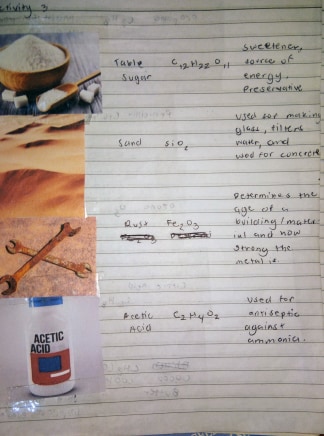 ctivity 3
Table Sugar
C12H22O11
Sweetener,
source of
energy.
Preservative
Sand
SiO2
Used for making
glass, filters
water, and
used for concrete
Rust
Fe2O3
Determines the
age of a
building/mater
ial and how
strong the
metal is.
ACETIC
ACID
Acetic
Acid
C2H4O2
Used for
antiseptic
against
ammonia.